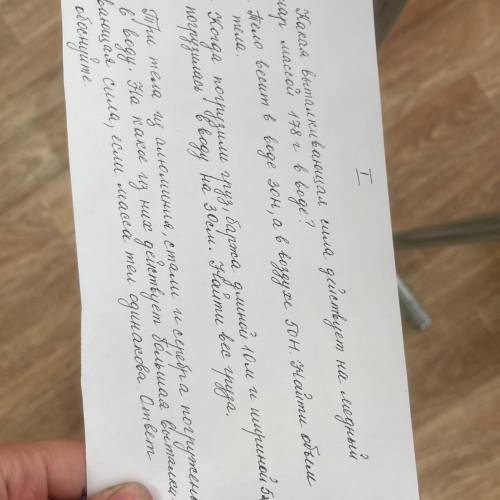 I
Какая выталкивающая сила действует на медный
шар массой 178 г в воде?
Тело весит в воде 30Н, а в воздухе 50Н. Найти объём
тела.
Когда погрузили груз, баржа длиной 10м и шириной 5м
погрузилась в воду на 30см. Найти вес груза.
Три тела из алюминия, стали и серебра погружены
в воду. На какое из них действует большая выталки-
вающая сила, если масса тел одинакова. Ответ
обоснуйте.